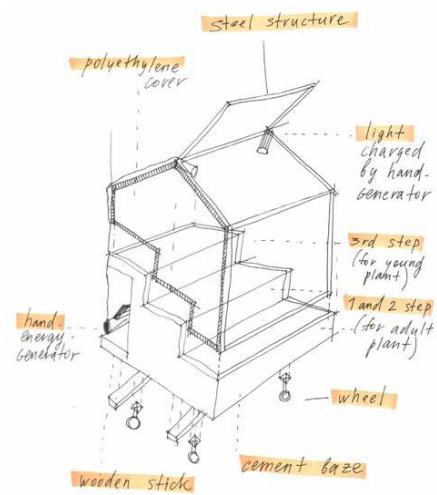 steel structure
polyethylene
cover
light
charged
by hand-
generator
3rd step
(for young
plant)
1 and 2 step
(for adult
plant)
hand-
energy-
generator
wheel
wooden stick
cement baze